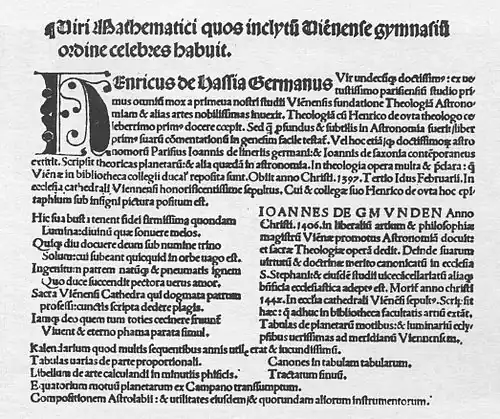 ¶Viri Mathematici quos inclytū Viēnense gymnasiū
ordine celebres habuit.
HENRICUS de Hassia Germanus Vir undecūq; doctissimꝰ: ex ve
tustissimo parisiensi studio pri
mus omniū mox a primeua nostri studii Viēnensis fundatione Theologiā Astrono
miam & alias artes nobilissimas inuexit. Theologiā cū Henrico de ovta theologo ce
leberrimo primꝰ docere coepit. Sed q̄ profundus & subtilis in Astronomia fuerit/liber
primꝰ suarū cōmentationū in genesim facile testat. Vel hoc etiā q; doctissimoꝝ astro
nomorū Parisius Ioannis de lineriis germani: & Ioannis de saxonia contēporaneus
extitit. Scripsit theoricas planetarū: & alia quædā in astronomia. In theologia opera multa & præclara: q̄
Viēnæ in bibliotheca collegii ducal' reposita sunt. Obiit anno Christi. 1397. Tertio Idus Februarii. In
ecclesia cathedrali Viennensi honorificentissime sepultus. Cui & collegæ suo Henrico de ovta hoc epi
taphium sub insigni pictura positum est.
Hic sua busta tenent fidei firmissima quondam
Lumina: diuinū quæ sonuere melos.
Quiq; diu docuere deum sub numine trino
Solum: cui subeant quicquid in orbe uago est.
Ingenitum patrem natūq; & pneumatis ignem
Quo duce succendit pectora uerus amor.
Sacra Viēnensi Cathedra qui dogmata patrum
professi: cunctis scripta dedere plagis.
Iamq; deo quem tum toties cecinere fruunt'
Viuent & eterno phama parata simul.
IOANNES DE GMVNDEN Anno
Christi. 1406. in liberaliū artium & philosophiæ
magistrū Viēnæ promotus Astronomiā docuit:
et sacræ Theologiæ operā dedit. Deinde suarum
uirtutū & doctrinæ merito canonicatū in ecclesia
S. Stephani: & eiusdē studii uicecācellariatū aliaq;
bñficia ecclesiastica adeptꝰ est. Moritꝰ anno christi
1442. In ecclesia cathedrali Viēnēsi sepulꝰ. Scripsit
hæc: q̄ adhuc in bibliotheca facultatis artiū extāt.
Tabulas de planetarū motibus: & luminariū ecly
psibus uerissimas ad meridianū Viennensem.
Kalendarium quod multis sequentibus annis utile erat & iucundissimū.
Tabulas uarias de parte proportionali.
Canones in tabulam tabularum.
Libellum de arte calculandi in minutiis phisicis.
Tractatum sinuū.
Equatorium motuū planetarum ex Campano transumptum.
Compositionem Astrolabii: & utilitates eiusdem: & quorundam aliorum instrumentorum.